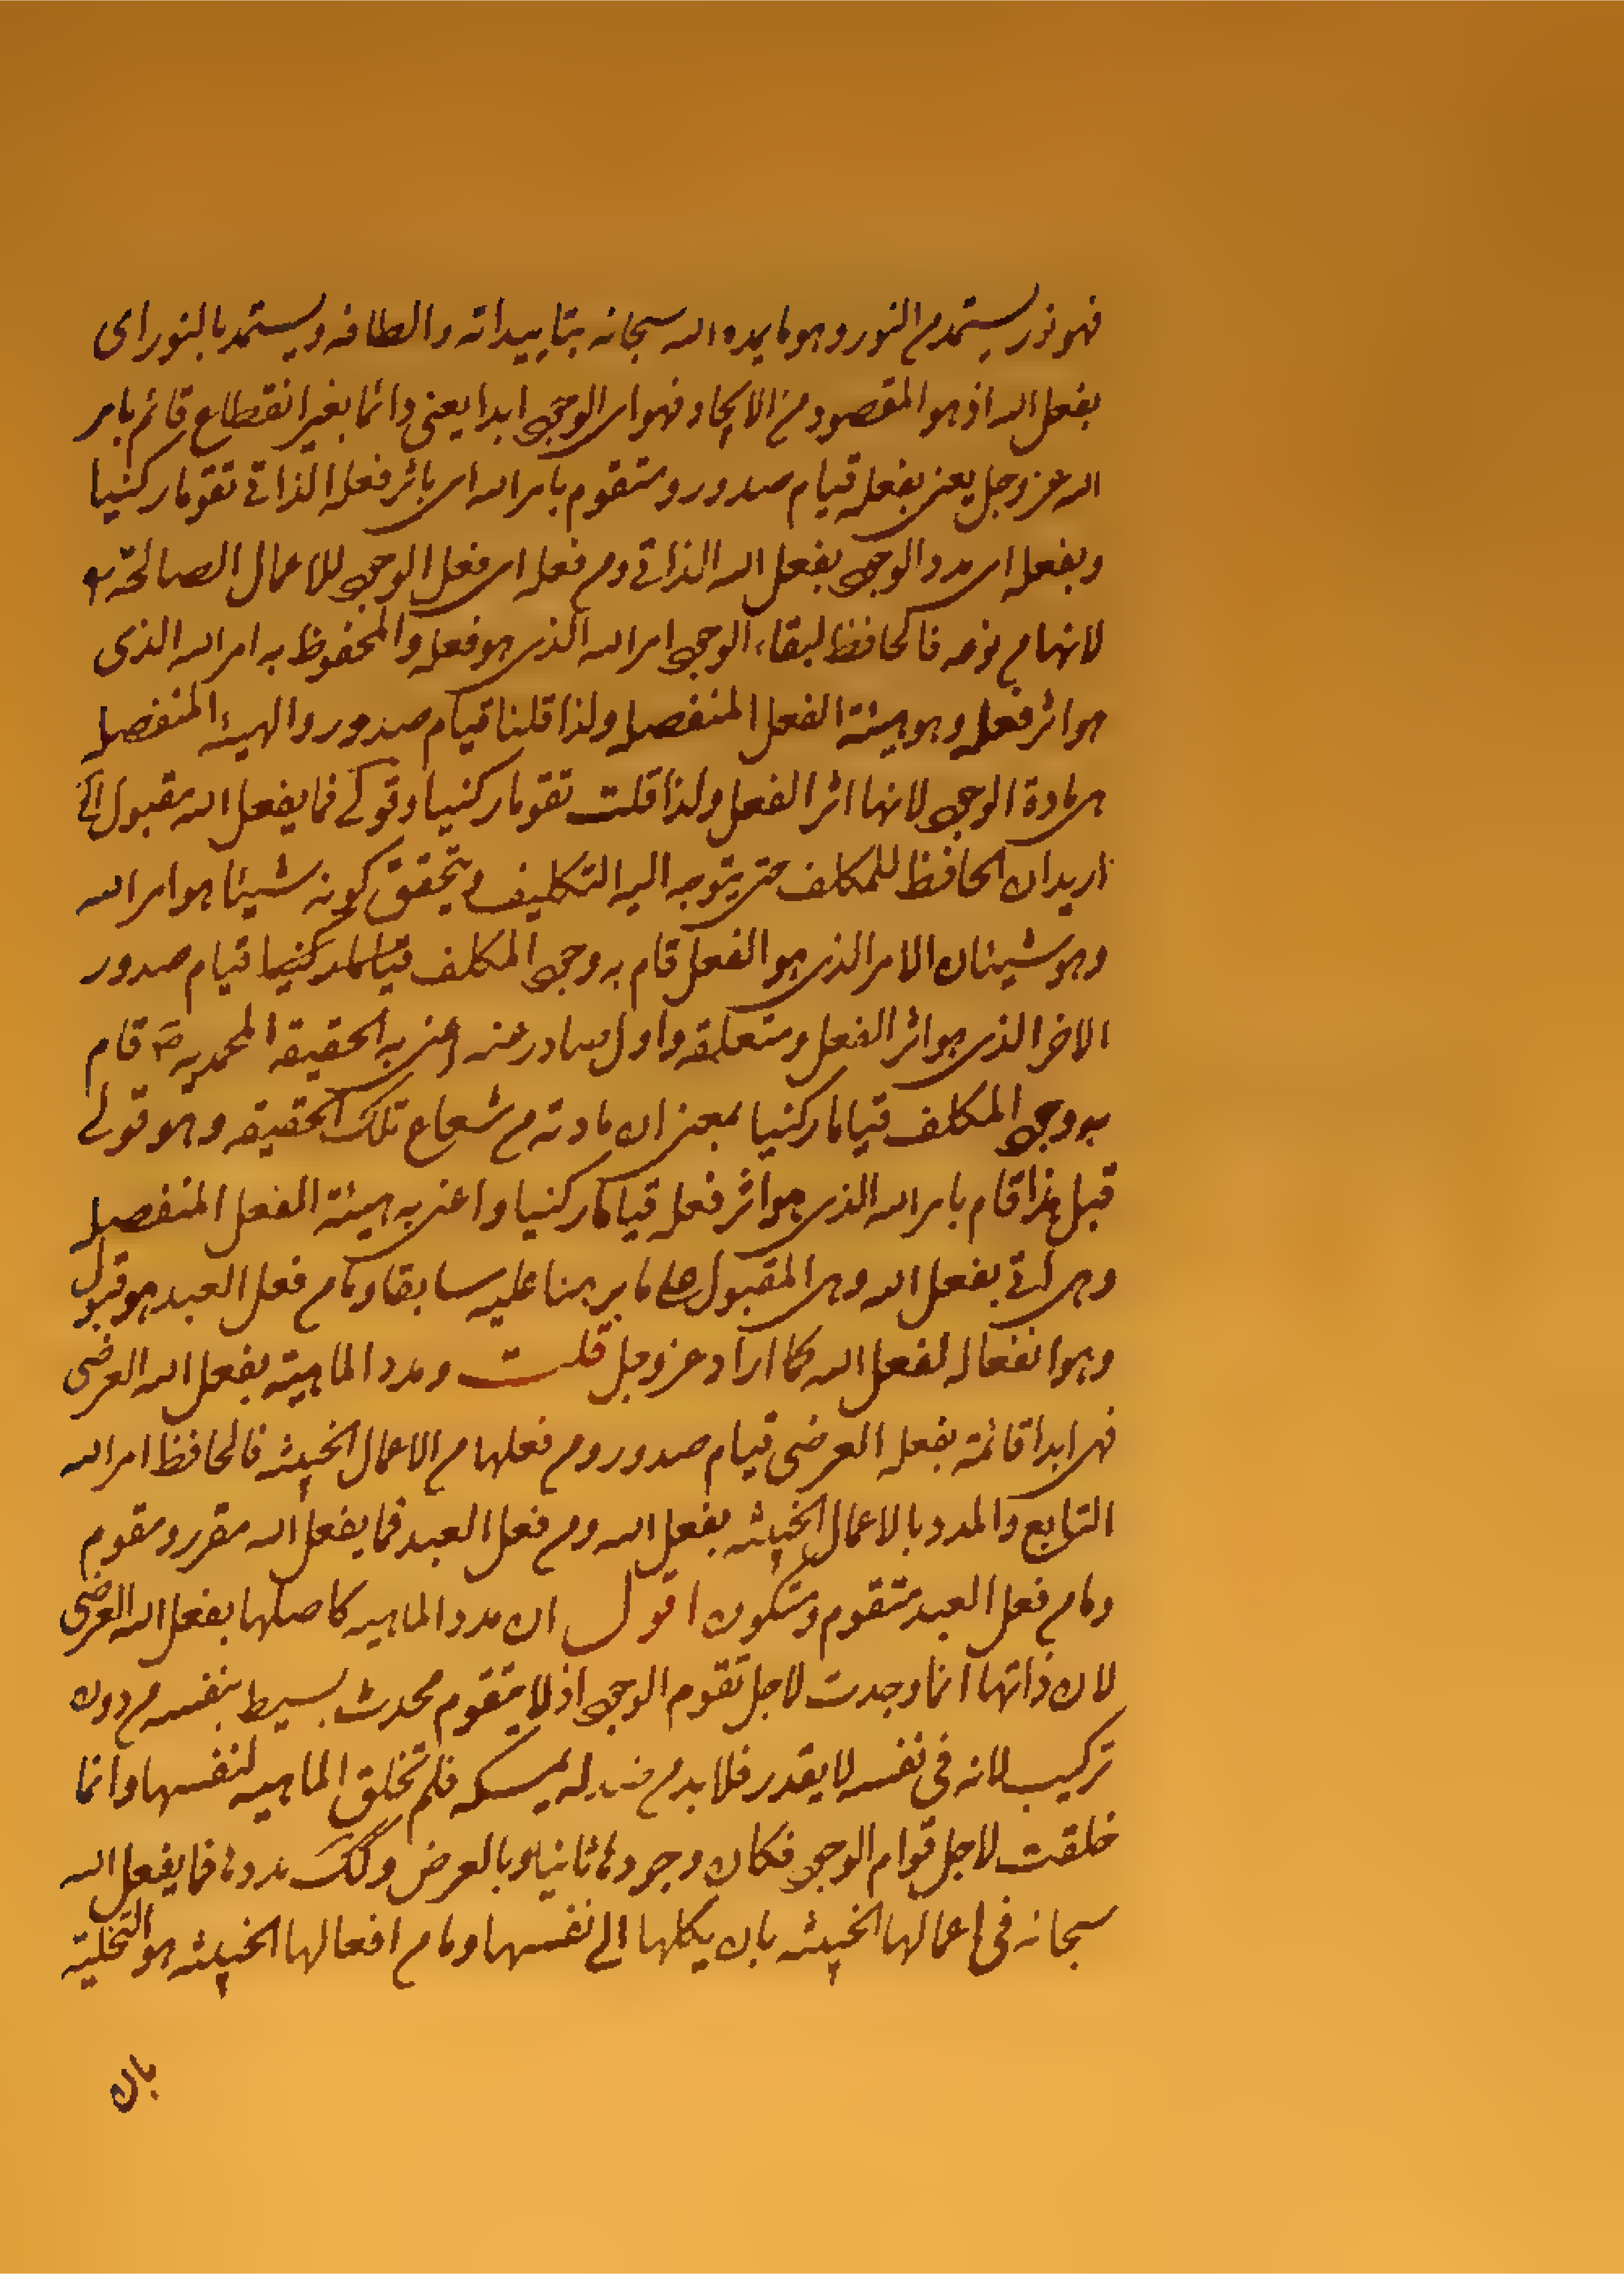 فهو نور يستمد من النور وهو ما يمده الله سبحانه بتاييداته والطافه ويستمد بالنور اى
بفعل الله اذ هو المقصود من الايجاد فهو اى الوجود ابدا يعنى دائما بغير انقطاع قائم بامر
الله عز وجل يعنى بفعله قيام صدور ومتقوم بامر الله اى باثر فعله الذاتى تقوما ركنيا
وبفعله اى مدد الوجود بفعل الله الذاتى ومن فعله اى فعل الوجود للاعمال الصالحة
لانها من نوعه فالحافظ لبقاء الوجود امر الله الذى هو فعله والمحفوظ به امر الله الذى
هو اثر فعله وهو هيئة الفعل المنفصلة ولذا قلنا قيام صدور والهيئه المنفصلة
هى مادة الوجود لانها اثر الفعل ولذا قلت تقوما ركنيا وقولى فما بفعل الله مقبول الى
اريد ان الحافظ للمكلف حتى يتوجه اليه التكليف ويتحقق كونه شيئا هو امر الله
وهو شيئان الامر الذى هو الفعل قام به وجود المكلف قيام صدور
الاخر الذى هو اثر الفعل ومتعلقه واول صادر عنه اعنى به الحقيقه المحمديه ص قام
به وجود المكلف قياما ركنيا بمعنى ان مادته من شعاع تلك الحقيقه وهو قولى
قبل هذا قام بامر الله الذى هو اثر فعله قياما ركنيا واعنى به هيئة الفعل المنفصلة
وهى التى بفعل الله وهى المقبول على ما برهنا عليه سابقا وما من فعل العبد هو قبول
وهو انفعاله لفعل الله كما اراد عز وجل قلت ومدد الماهية بفعل الله العرضى
فهى ابدا قائمة بفعله العرضى قيام صدور ومن فعلها من الاعمال الخبيثه فالحافظ امر الله
التابع والمدد بالاعمال الخبيثه بفعل الله ومن فعل العبد فما بفعل الله مقرر ومقوم
وما من فعل العبد متقوم ومتكون اقول ان مدد الماهيه كاصلها بفعل الله العرضى
لان ذاتها انما وجدت لاجل تقوم الوجود اذ لا يتقوم محدث بسيط بنفسه من دون
تركيب لانه فى نفسه لا يقدر فلا بد من ضد له يمسكه فلم تخلق الماهيه لنفسها وانما
خلقت لاجل قوام الوجود فكان وجودها ثانيا وبالعرض وكك مددها فما بفعل الله
سبحانه فى اعمالها الخبيثه بان يكلها الى نفسها وما من افعالها الخبيثه هو التخلية
بان